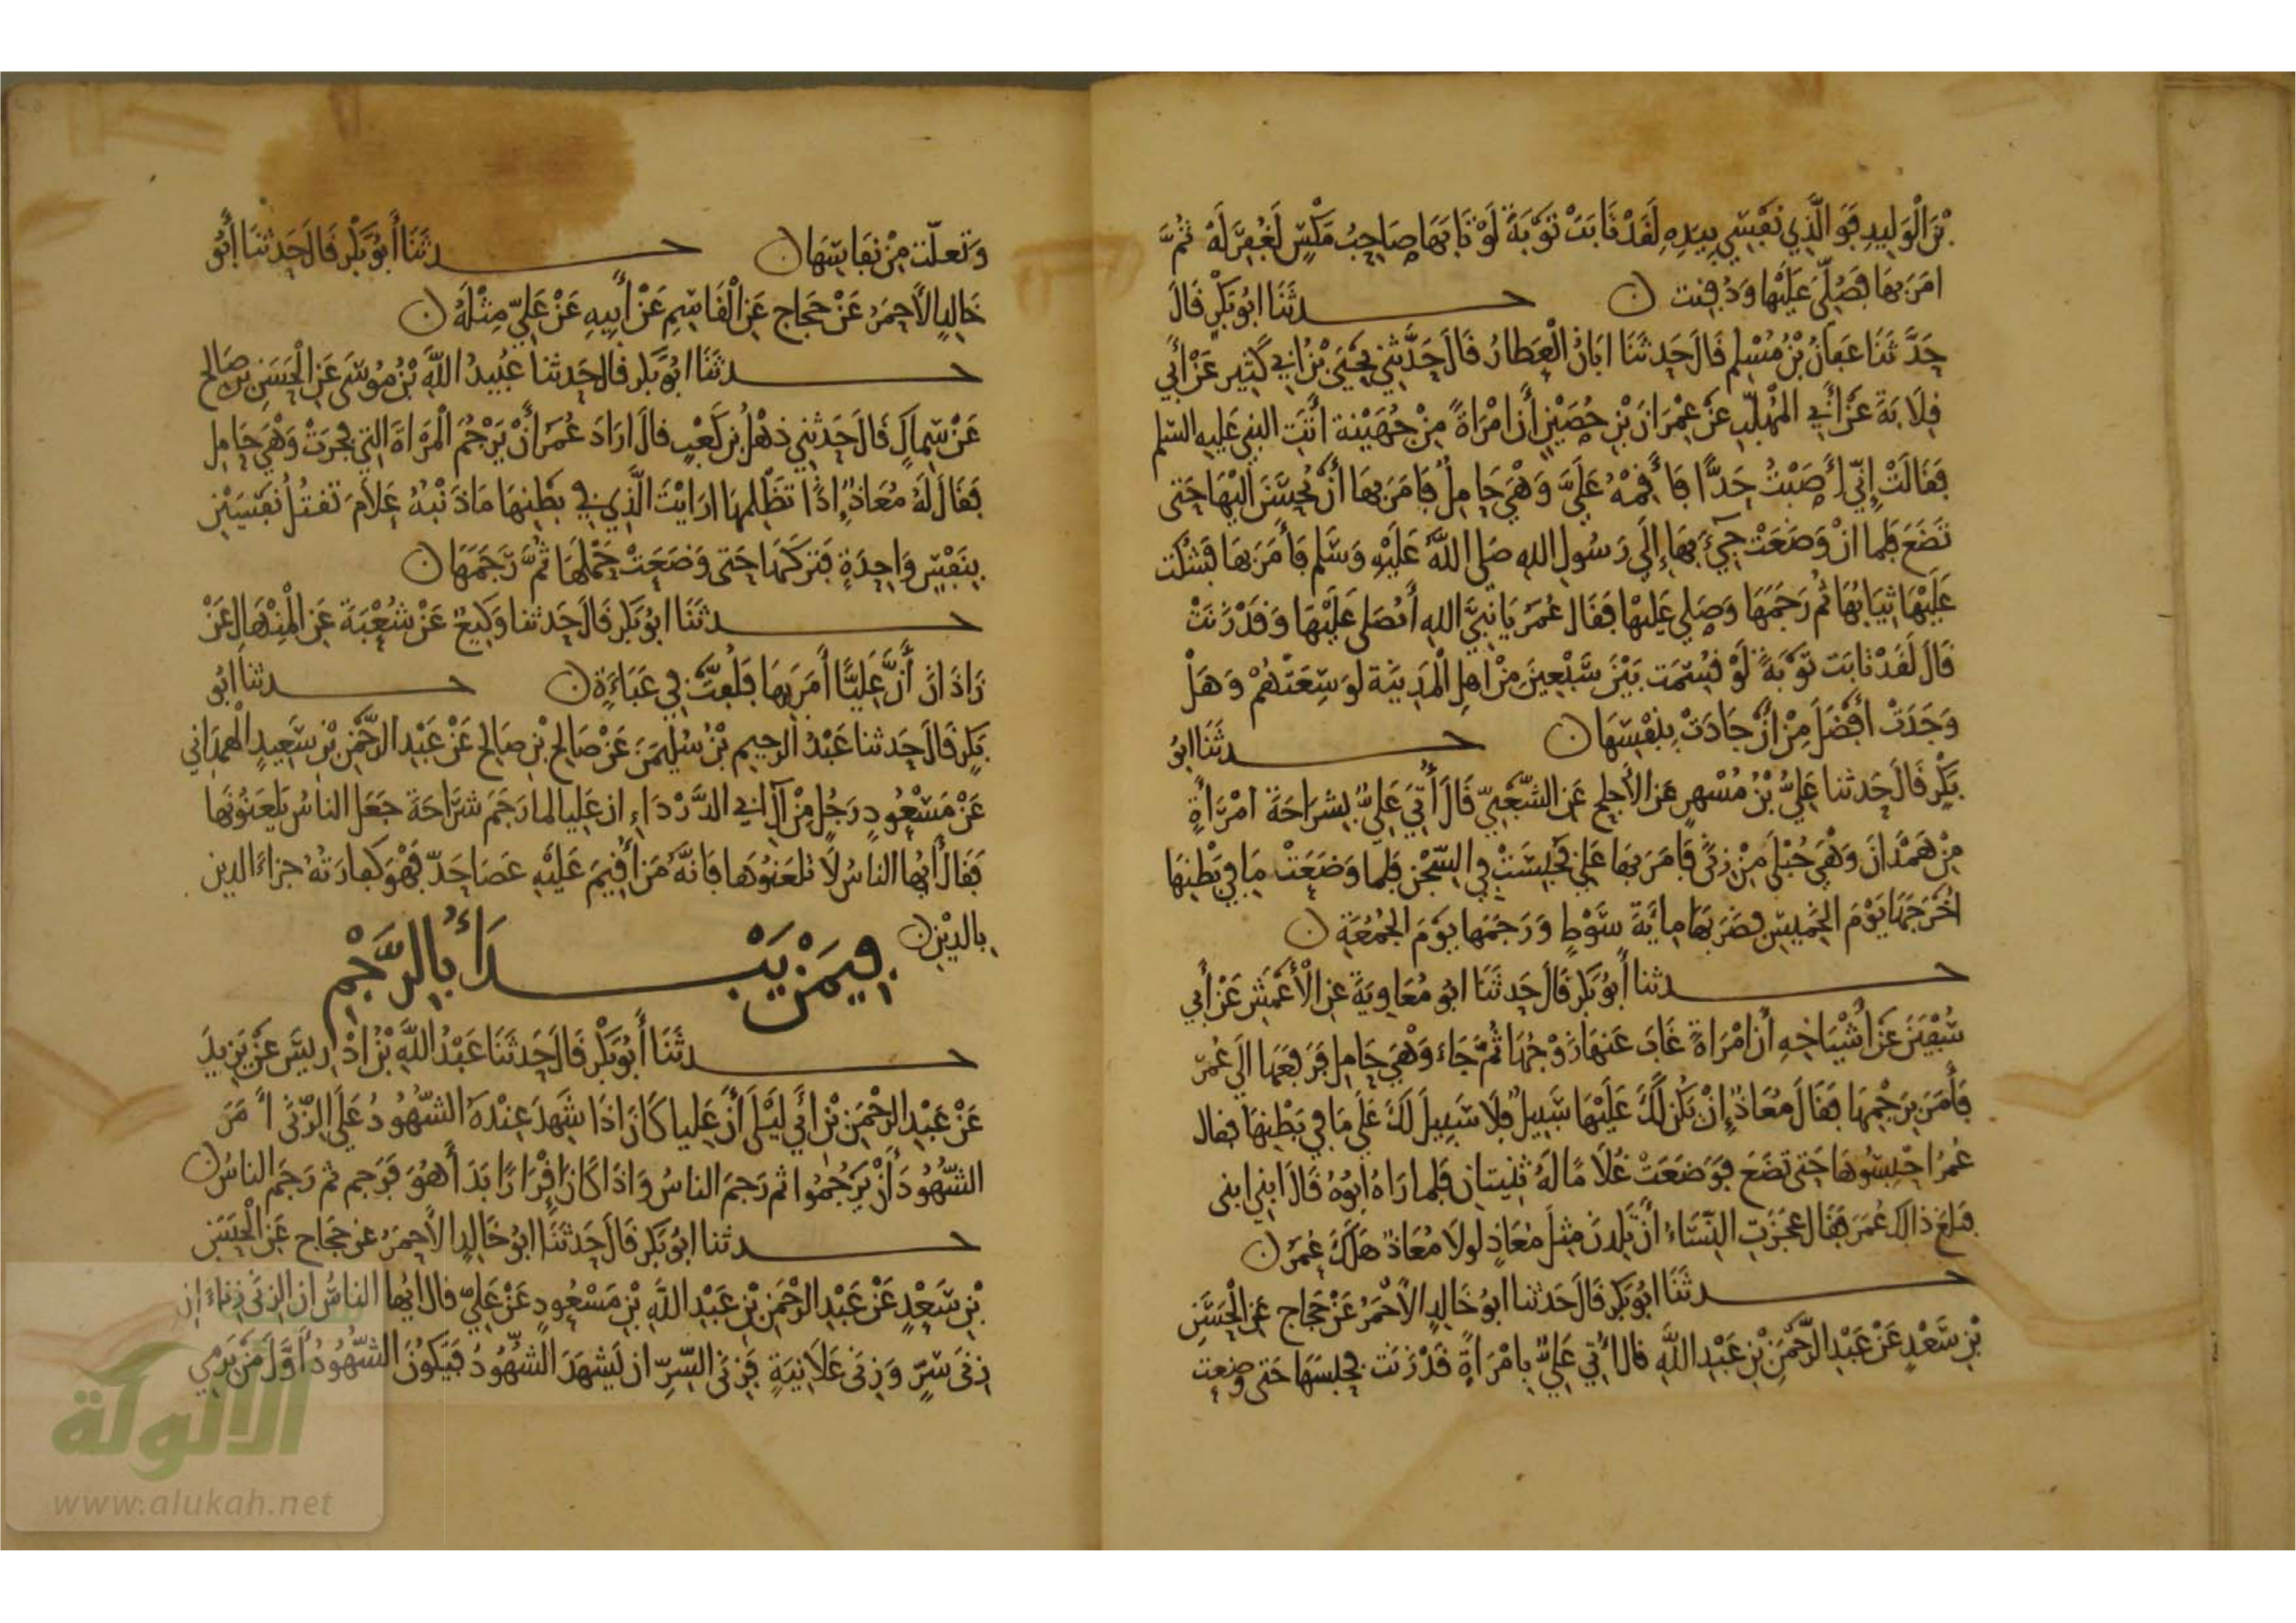 بْنَ الْوَلِيدِ فَوَ الَّذِي نَفْسِي بِيَدِهِ لَقَدْ تَابَتْ تَوْبَةً لَوْ تَابَهَا صَاحِبُ مَكْسٍ لَغُفِرَ لَهُ ثُمَّ
امَرَ بِهَا فَصُلِّيَ عَلَيْهَا وَدُفِنت ن حـدثَنَا ابُو بَكْرٍ قَالَ
حَدَّثَنَا عَفَانُ بْنُ مُسْلِمٍ قَالَ حَدثَنَا ابَانُ الْعَطارُ قَالَ حَدَّثَنِي يَحْيَى بْنُ ابِي كَثِير عَنْ أَبِي
قِلَابَةَ عَنْ أَبِي المُهَلَّبِ عَنْ عِمْرَانَ بْنِ حُصَيْنٍ أَن امْرَاةً مِنْ جُهَيْنة اتَتِ النبي عَليهِ السلم
فَقَالَتْ إِنِّي أَصَبْتُ حَدًّا فَأَقِمْهُ عَلَيَّ وَهْيَ حَامِلٌ فَامَرَ بِهَا أَنْ يُحْسَنَ الَيْهَا حَتى
تَضَعَ فَلما انْ وَضَعَتْ جِيءَ بِهَا إِلَى رَسُولِ اللهِ صَلى اللَّهُ عَلَيْهِ وَسَلم فَأَمَرَ بِهَا فَشُكت
عَلَيْهَا ثِيَابُهَا ثُم رَجَمَهَا وَصَلى عَلَيْهَا فَقَالَ عُمَرُ يَا نَبِيَّ اللهِ أَتُصَلى عَلَيْهَا وَقَدْ زَنَتْ
قَالَ لَقَدْ تَابَت تَوْبَةً لَوْ قُسِمَت بَيْنَ سَبْعِينَ مِنْ اهلِ الْمَدِينَة لَوَسِعَتْهُمْ وَهَلْ
وَجَدَتْ أَفْضَلَ مِنْ أَنْ جَادَتْ بِنَفْسِهَا ن حـدثَنَا ابُو
بَكْرٍ قَالَ حَدثنا عَلِيُّ بْنُ مُسْهِرٍ عَنِ الأَجلحِ عَنِ الشَّعْبِيِّ قَالَ أُتِيَ عَلِيٌّ بِشرَاحَةَ امْرَأَةٍ
مِنْ هَمْدَانَ وَهْيَ حُبْلَى مِنْ زِنًى فَامَرَ بِهَا عَلِيٌّ فحُبِسَتْ فِي السِّجْنِ فَلما وَضَعَتْ مَا فِي بَطْنِهَا
اخْرَجَهَا يَوْمَ الخَمِيسِ فضَرَبَهَا مِايَةَ سَوْطٍ وَرَجَمَهَا يَوْمَ الجُمُعَةِ ن
حـدثنا أَبُو بَكْرٍ قَالَ حَدثَنَا ابُو مُعَاوِيَةَ عنِ الْأَعْمَشِ عَنْ أَبِي
سُفْيَنَ عَنْ أَشْيَاخِهِ أَن امْرَاةً غَابَ عَنهَا زَوْجُهَا ثُمَّ جَاءَ وَهْيَ حَامِل فَرَفَعَهَا الَى عُمَرَ
فَأَمَرَ بِرَجْمِهَا فَقَالَ مُعَاذٌ إِنْ يَكُن لَّكَ عَلَيْهَا سَبِيلٌ فَلَا سَبِيلَ لَكَ عَلَى مَا فِي بَطْنِهَا فقال
عُمَرُ احْبِسُوهَا حَتى تَضَعَ فَوَضَعَتْ غُلَامًا لَهُ ثَنِيَّتان فَلما رَاهُ ابُوهُ قَالَ ابني ابنى
فبلغ ذالِكَ عُمَرَ فقالَ عجَزَتِ النِّسَاءُ أَنْ يَلِدنَ مِثلَ مُعَاذٍ لولَا مُعَاذٌ هَلَكَ عُمَرُ ن
حـدثَنَا ابُو بَكْرٍ قَالَ حَدثنا ابُو خَالِدٍ الأَحْمَرُ عَنْ حَجَّاجٍ عَنِ الْحَسَنِ
بْنِ سَعْدٍ عَنْ عَبْدِ الرَّحْمَنِ بْنِ عَبْدِ اللَّهِ قالَ أُتِي عَلِيٌّ بِامْرَاةٍ قَدْ زَنَت فحبسَهَا حَتى وضعت
وَتعلّت مِنْ نفَاسِهَا ن حـدثَنَا أَبُو بَكْرٍ قَالَ حَدثَنَا أَبُو
خَالِدٍ الأَحمَرُ عَنْ حَجَّاجٍ عَنِ الْقَاسِمِ عَنْ أَبِيهِ عَنْ عَلِيٍّ مِثْلَهُ ن
حـدثَنَا ابُو بَكْرٍ قالَ حَدثنا عُبَيدُ اللَّهِ بْنُ مُوسَى عَنِ الْحَسَنِ بنِ صَالحٍ
عَنْ سِمَاكٍ قَالَ حَدثنِي ذهْلُ بْنُ كَعْبٍ قالَ ارَادَ عُمَرُ أَنْ يَرْجُمَ الْمَرْاةَ التِي فجَرَتْ وَهْيَ حَامِل
فَقَالَ لَهُ مُعَاذٌ إِذًا تَظْلِمهَا ارَايْتَ الَّذِي فِي بَطْنِهَا مَا ذَنْبُهُ عَلَامَ تَقتُلُ نَفْسَيْنِ
بِنَفْسٍ وَاحِدَةٍ فَتَرَكَهَا حَتى وَضَعَتْ حَمْلَهَا ثُمَّ رَجَمَهَا ن
حـدثَنَا ابُو بَكْرٍ قَالَ حَدثنا وَكِيعٌ عَنْ شُعْبَةَ عَنِ الْمِنْهَالِ عَنْ
زَاذَانَ أَنَّ عَلِيًّا أَمَرَ بِهَا فَلُفَّتْ فِي عَبَاءَةٍ ن حـدثنا ابُو
بَكْرٍ قَالَ حَدثنا عَبْدُ الرحِيمِ بْنُ سُلَيْمَنَ عَنْ صَالِحِ بْنِ صَالِحٍ عَنْ عَبْدِ الرَّحْمَنِ بْنِ سَعِيدٍ الْهَمدَانِي
عَنْ مَسْعُودٍ رَجُلٍ مِنْ آلِ ابِي الدَّرْدَاءِ ان عَلِيا لما رَجَمَ شرَاحَةَ جَعَلَ الناسُ يَلعَنُونَهَا
فَقَالَ أَيُّهَا النَّاسُ لَا تَلعَنُوهَا فَانَّهُ مَنْ أُقِيمَ عَلَيْهِ عَصَا حَدّ فَهُوَ كفارَتُهُ جزاءَ الدين
بِالديْنِ ن فِيمَنْ يَبْـدَأُ بِالرَّجْمِ
حـدثَنَا أَبُو بَكْرٍ قَالَ حَدثَنَا عَبْدُ اللَّهِ بْنُ ادْرِيسَ عَنْ يَزِيدَ
عَنْ عَبْدِ الرحْمَنِ بْنِ ابِي لَيْلَى أَنَّ عَلِيا كَانَ اذَا شهِدَ عِنْدَهُ الشُّهُودُ عَلَى الزِّنَى أَمَرَ
الشُّهُودَ أَنْ يَرْجُمُوا ثم رَجَمَ الناسُ وَاذَا كَانَ اقْرَارًا بَدَأَ هُوَ فَرَجم ثم رَجَم الناسُ ن
حـدثنا ابُو بَكْرٍ قَالَ حَدثَنَا ابُو خَالِدٍ الأَحمَرُ عن حَجَّاجٍ عَنِ الْحَسَنِ
بْنِ سَعْدٍ عَنْ عَبْدِ الرحْمَنِ بْنِ عَبْدِ اللَّهِ بْنِ مَسْعُودٍ عَنْ عَلِيٍّ قالَ ايُّهَا الناسُ ان الزِّنَى زِنَاءَانِ
زِنَى سِرٍّ وَزِنَى عَلَانِيَةٍ فَزِنَى السِّرِّ ان يَشهَدَ الشُّهُودُ فَيَكُونَ الشُّهُودُ أَوَّلَ مَنْ يَرْمِي
الألوكة
www.alukah.net